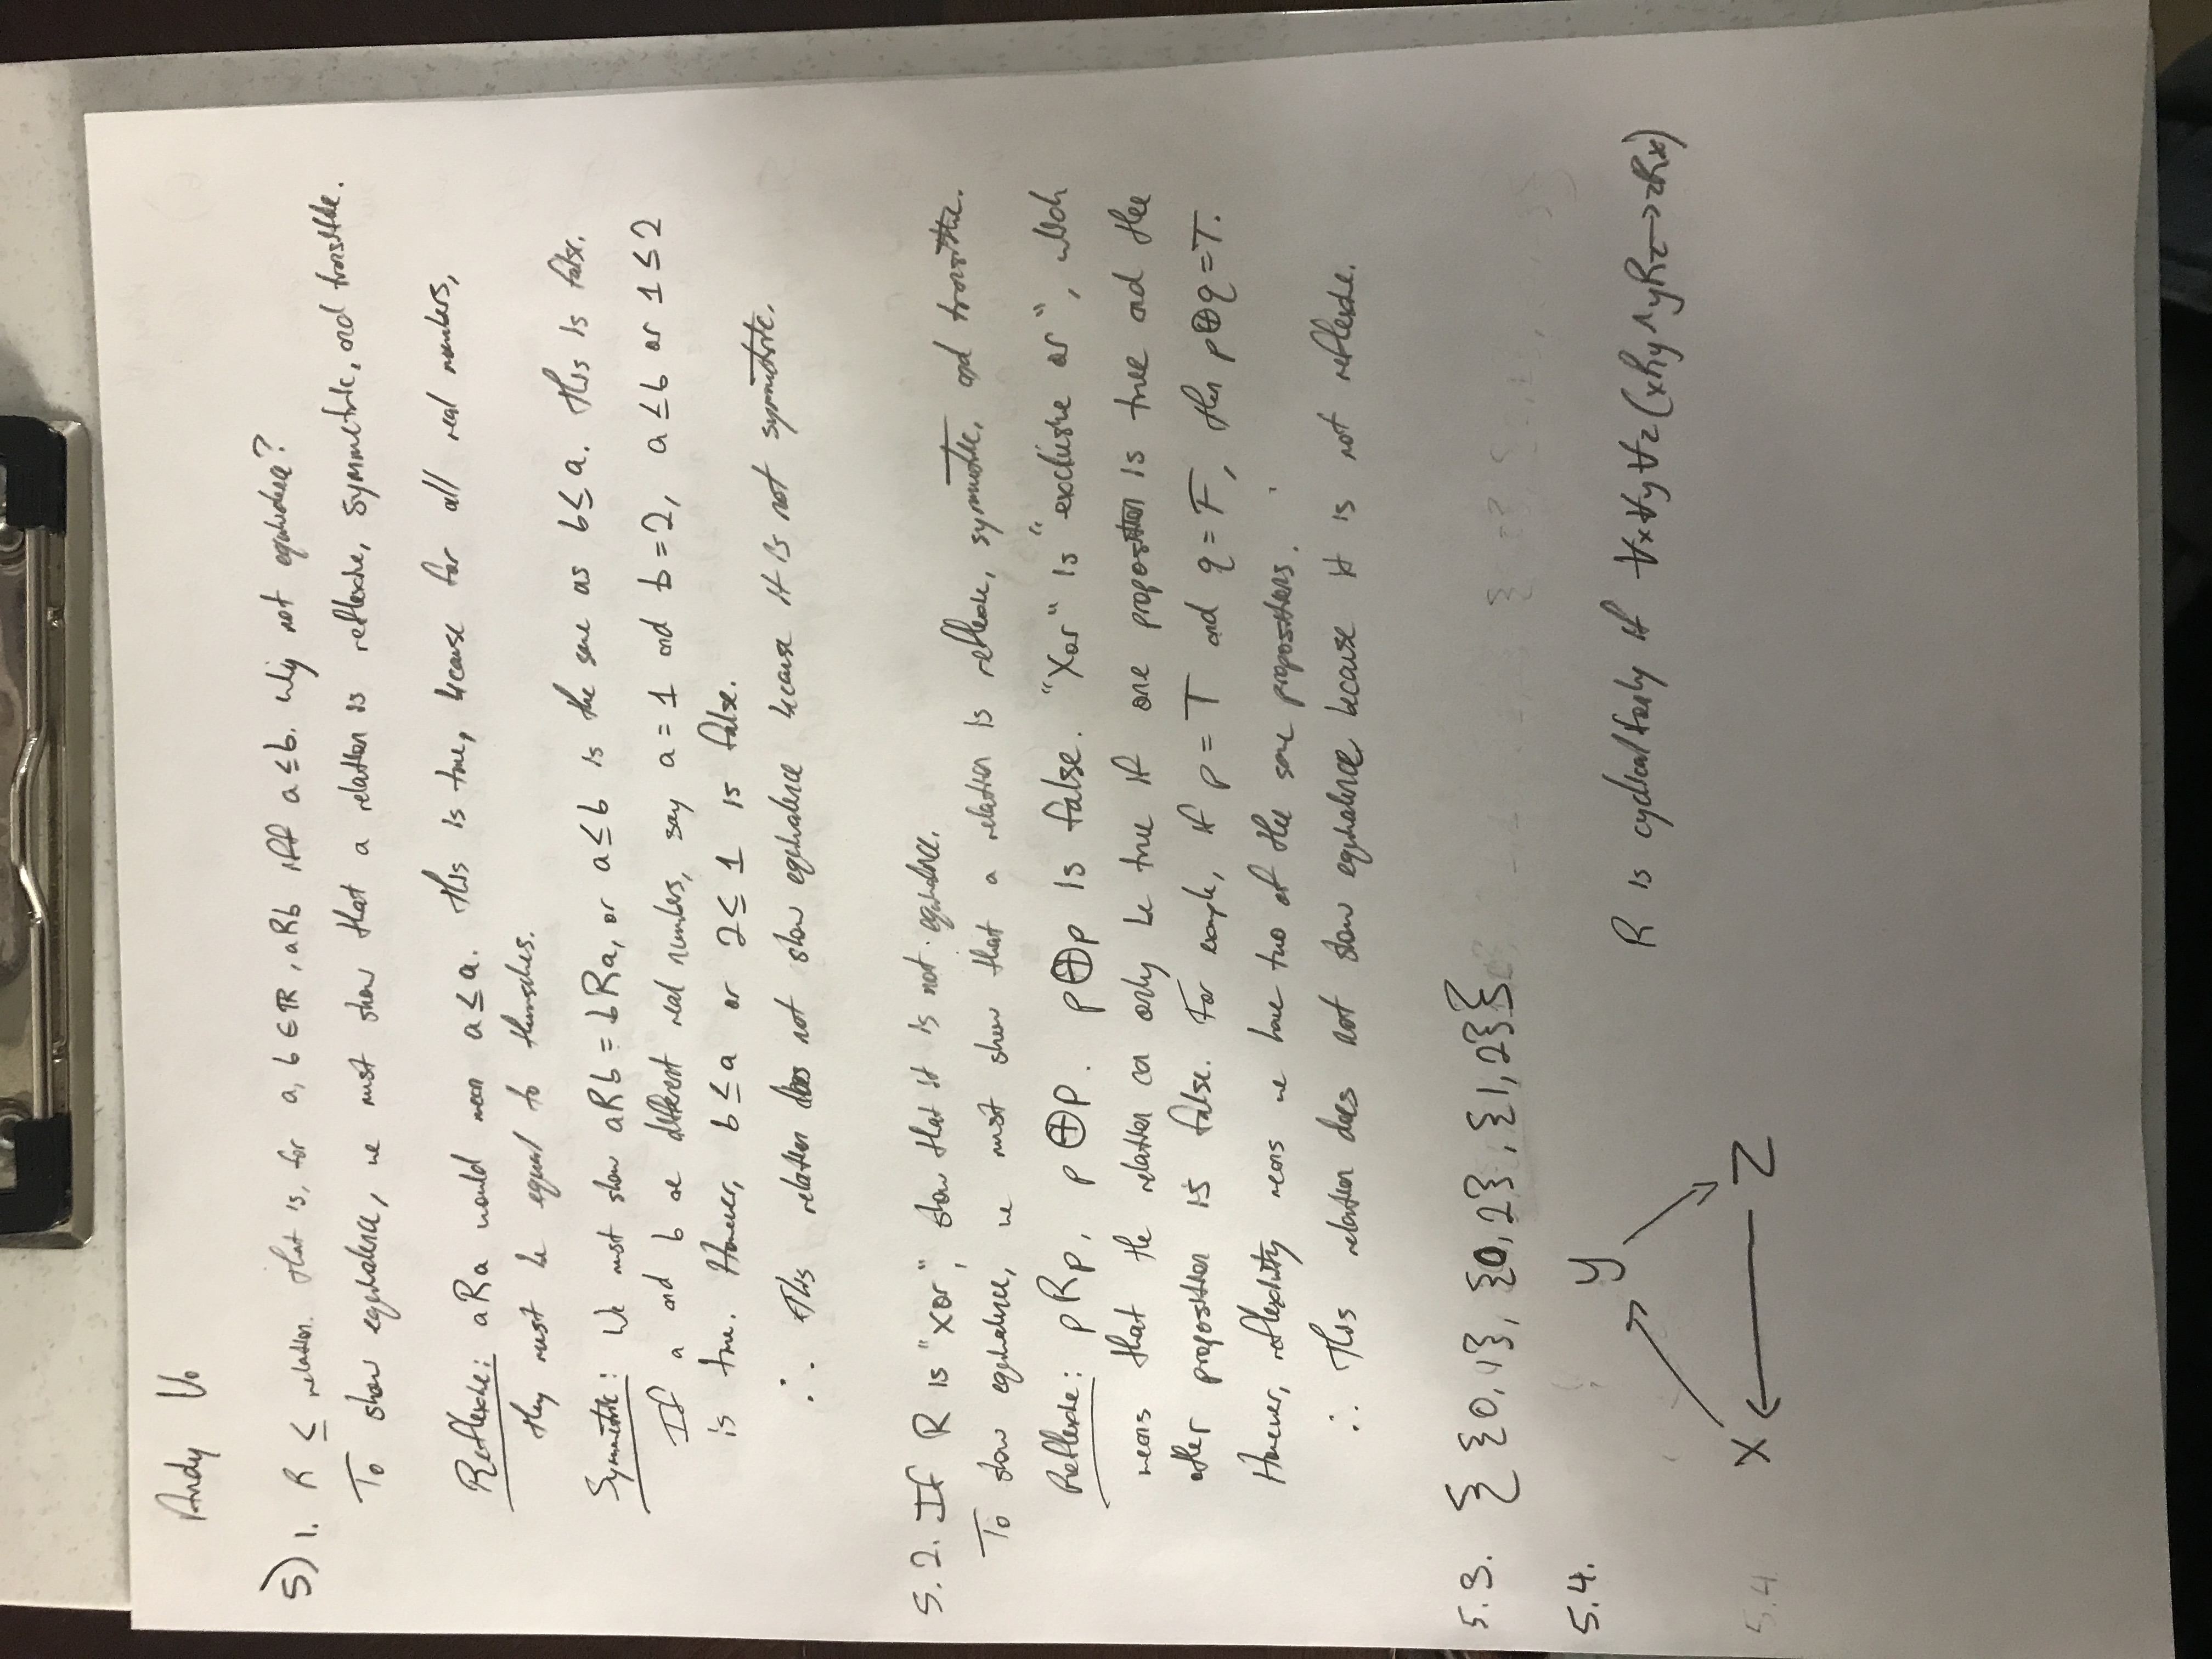 Andy Vo
5) 1. R ≤ relation. that is, for a, b ∈ ℝ, aRb iff a ≤ b. Why not equivalence?
To show equivalence, we must show that a relation is reflexive, symmetric, and transitive.
Reflexive: aRa would mean a ≤ a. This is true, because for all real numbers,
they must be equal to themselves.
Symmetric: We must show aRb = bRa, or a ≤ b is the same as b ≤ a. This is false.
If a and b are different real numbers, say a = 1 and b = 2, a ≤ b or 1 ≤ 2
is true. However, b ≤ a or 2 ≤ 1 is false.
∴ This relation does not show equivalence because it is not symmetric.
5.2. If R is "xor", show that it is not equivalence.
To show equivalence, we must show that a relation is reflexive, symmetric, and transitive.
Reflexive: pRp, p⊕p. p⊕p is false. "Xor" is "exclusive or", which
means that the relation can only be true if one proposition is true and the
other proposition is false. For example, if p = T and q = F, then p⊕q = T.
However, reflexivity means we have two of the same propositions.
∴ This relation does not show equivalence because it is not reflexive.
5.3. {{0,1}, {0,2}, {1,2}}
5.4.
y
R is cyclical if only if ∀x∀y∀z(xRy ∧ yRz → zRx)
x ← z
5.4